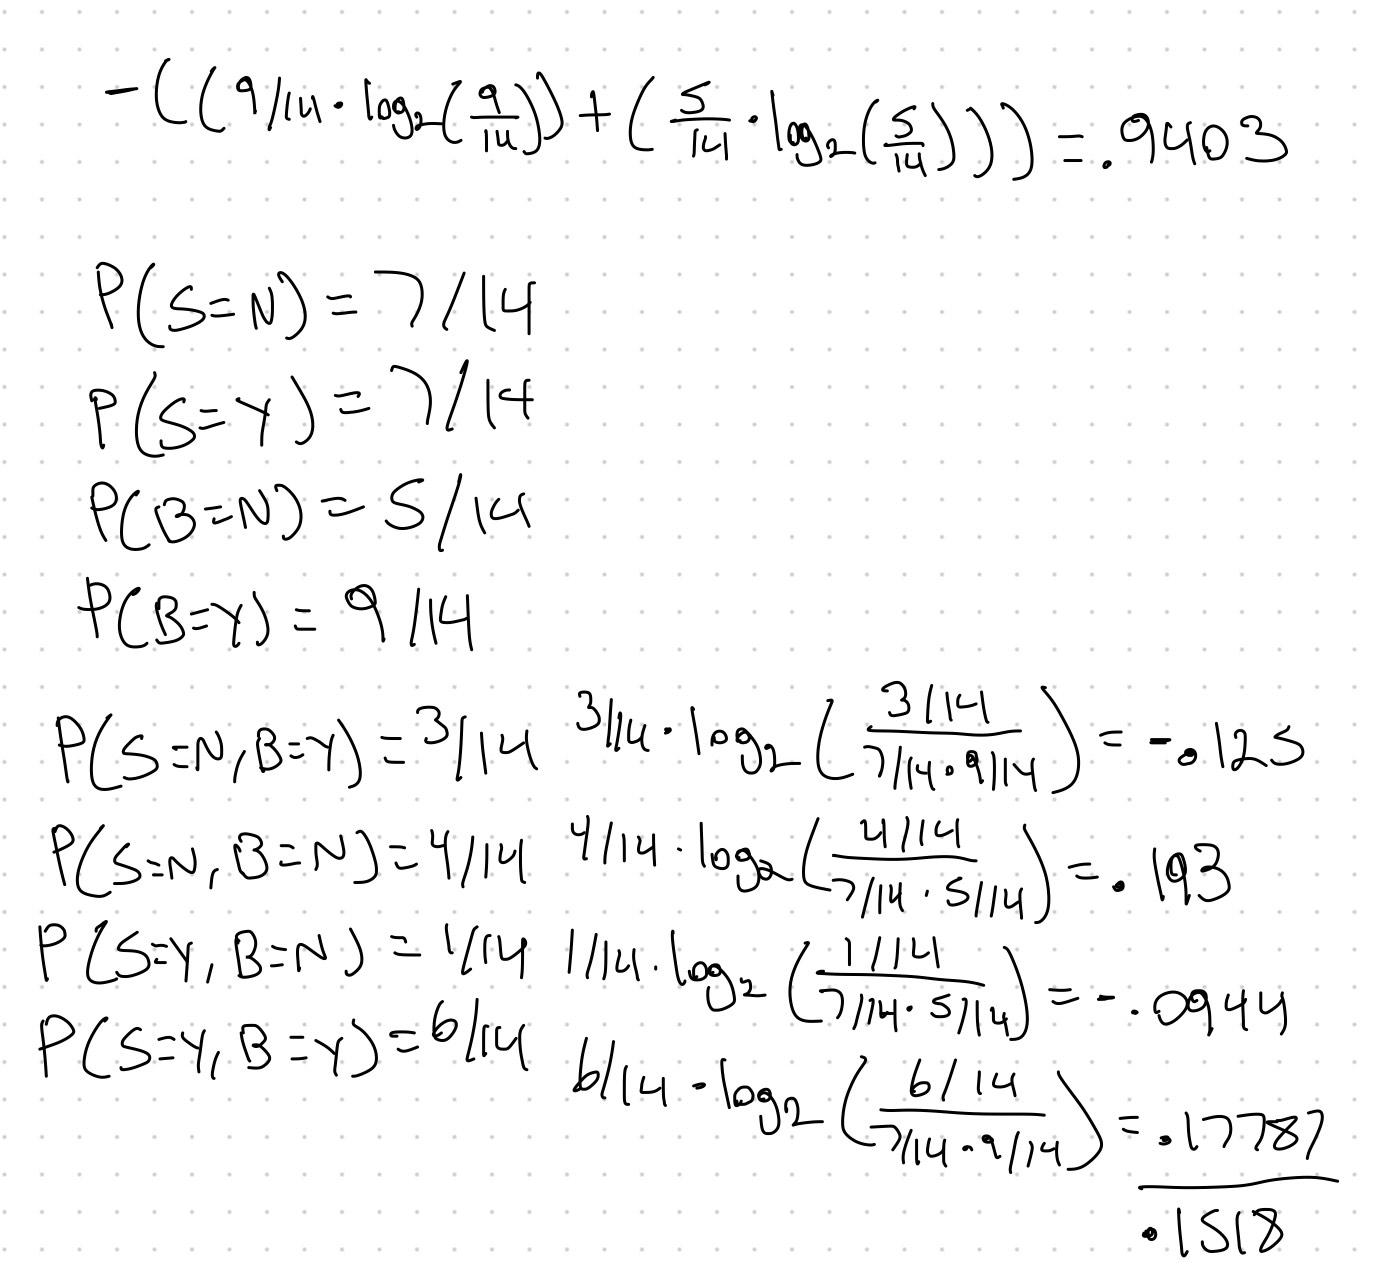 -((9/14·log₂(9/14))+(5/14·log₂(5/14)))=.9403
P(S=N)=7/14
P(S=Y)=7/14
P(B=N)=5/14
P(B=Y)=9/14
P(S=N,B=Y)=3/14 3/14·log₂((3/14)/(7/14·9/14))=-.125
P(S=N,B=N)=4/14 4/14·log₂((4/14)/(7/14·5/14))=.193
P(S=Y,B=N)=1/14 1/14·log₂((1/14)/(7/14·5/14))=-.0944
P(S=Y,B=Y)=6/14 6/14·log₂((6/14)/(7/14·9/14))=.17787
.1518